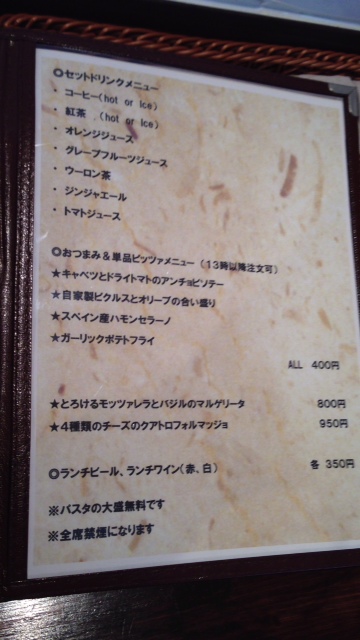 ◎セットドリンクメニュー
・ コーヒー(hot or ice)
・ 紅茶 (hot or ice)
・ オレンジジュース
・ グレープフルーツジュース
・ ウーロン茶
・ ジンジャエール
・ トマトジュース
◎おつまみ＆単品ピッツァメニュー（13時以降注文可）
★キャベツとドライトマトのアンチョビソテー
★自家製ピクルスとオリーブの合い盛り
★スペイン産ハモンセラーノ
★ガーリックポテトフライ
ALL 400円
★とろけるモッツァレラとバジルのマルゲリータ 800円
★4種類のチーズのクアトロフォルマッジョ 950円
◎ランチビール、ランチワイン(赤、白) 各 350円
※パスタの大盛無料です
※全席禁煙になります